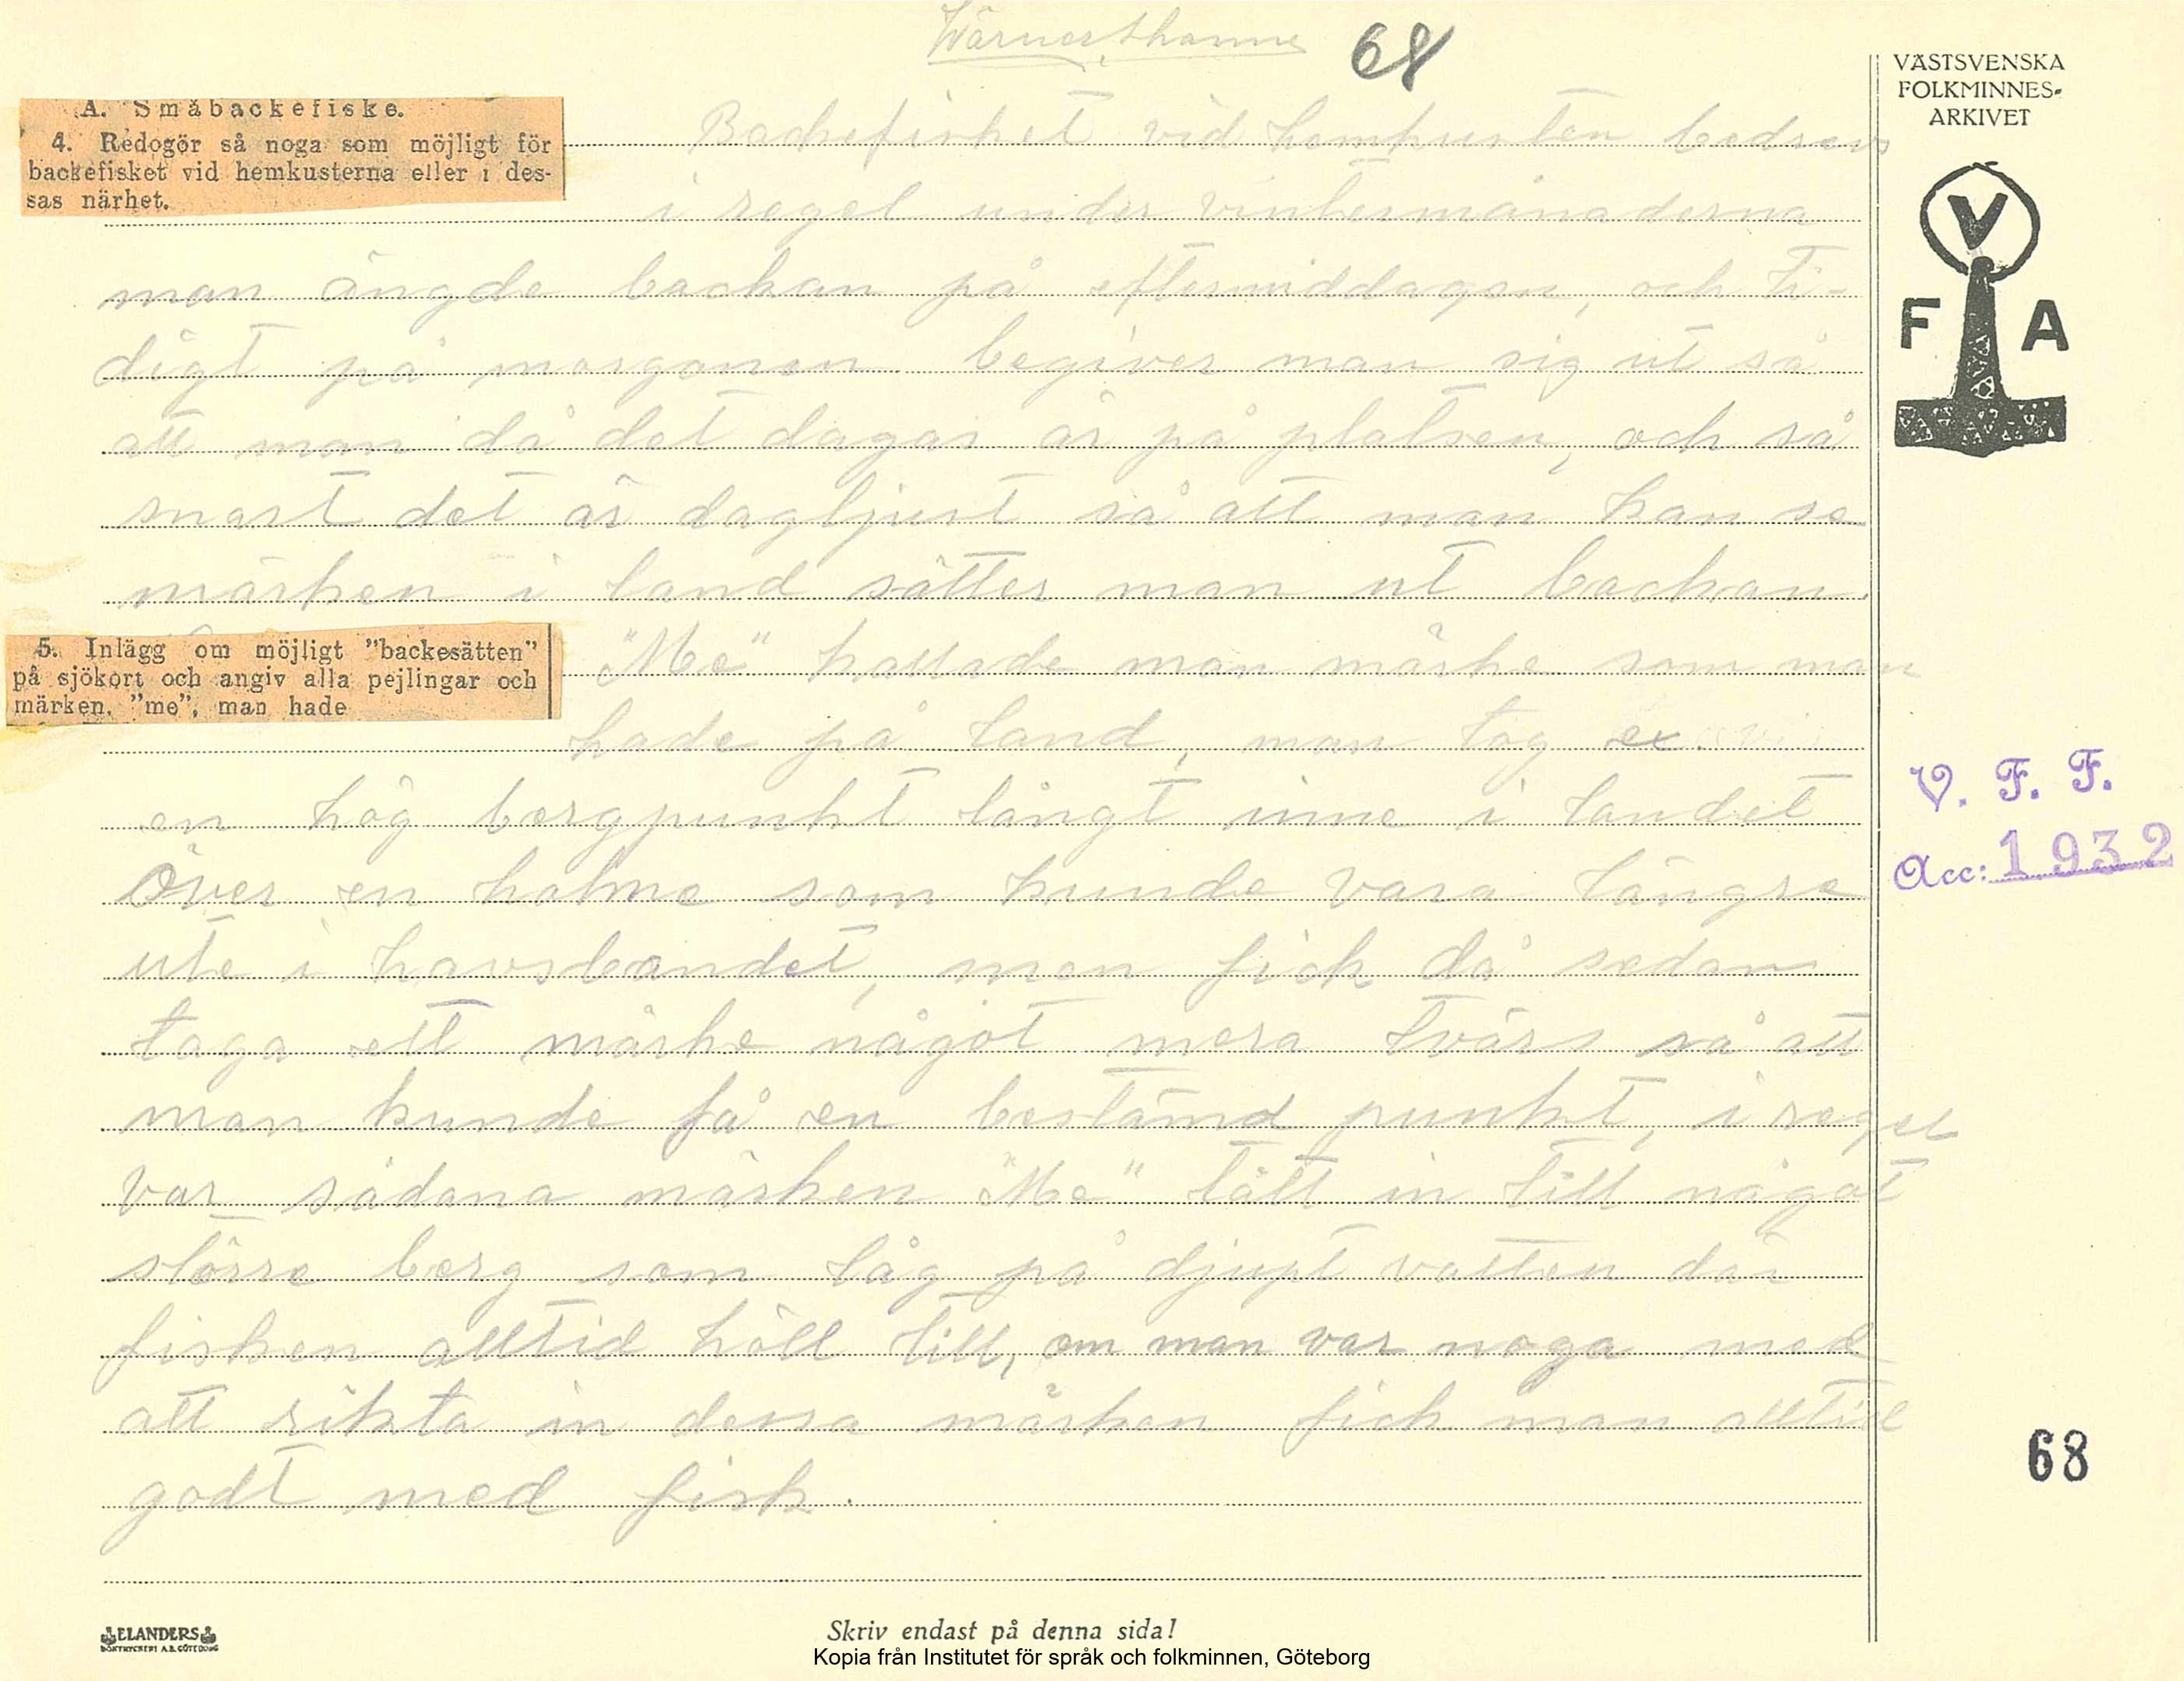 Wärnershamn
68
VÄSTSVENSKA
FOLKMINNES-
ARKIVET
V
F A
A. Småbackefiske.
4. Redogör så noga som möjligt för
backefisket vid hemkusterna eller i des-
sas närhet.
Backefisket vid hemkusten bedrevs
i regel under vintermånaderna
man ängde backan på eftermiddagen, och ti-
digt på morgonen begiver man sig ut så
att man då det dagas är på platsen, och så
snart det är dagljust så att man kan se
märken i land sätter man ut backan.
5. Inlägg om möjligt "backesätten"
på sjökort och angiv alla pejlingar och
märken, "me", man hade
"Me" kallade man märke som man
hade på land, man tog ex.
en hög bergpunkt långt inne i landet
Över en holme som kunde vara längre
ute i havsbandet, men fick då sedan
taga ett märke något mera tvärs så att
man kunde få en bestämd punkt, i regel
var sådana märken "Me" tätt in till något
större berg som låg på djupt vatten där
fisken alltid höll till, om man var noga med
att rikta in dessa märken fick man alltid
godt med fisk.
V. F. F.
Acc: 1932
68
ELANDERS
BOKTRYCKERI A.B. GÖTEBORG
Skriv endast på denna sida!
Kopia från Institutet för språk och folkminnen, Göteborg